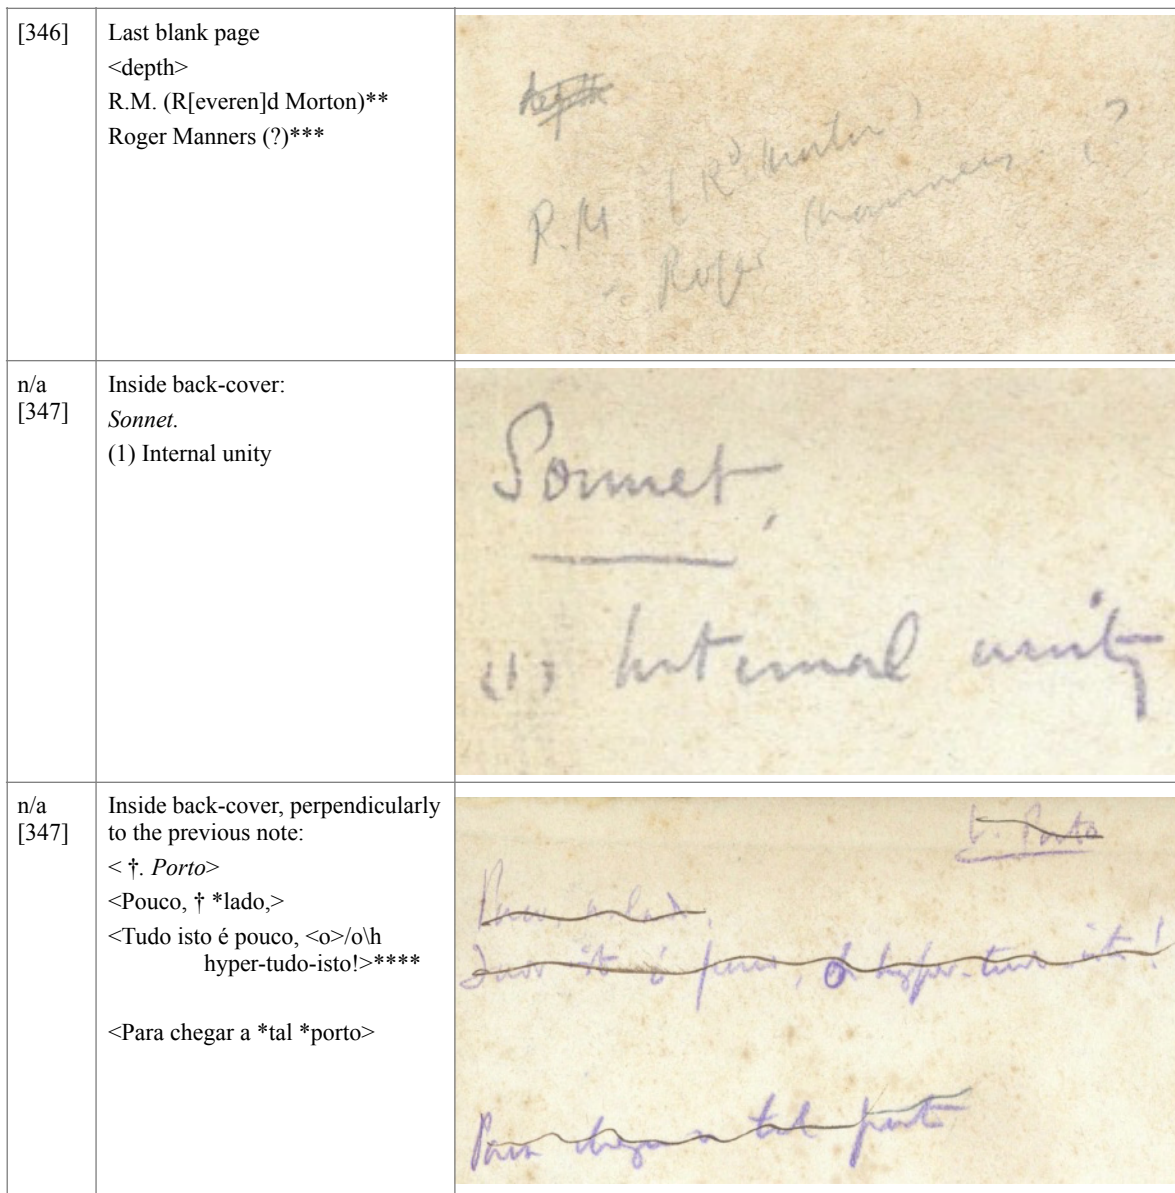 [346]
Last blank page
<depth>
R.M. (R[everen]d Morton)**
Roger Manners (?)***
depth
R.M (Rd. Morton)
Roger Manners (?
n/a
[347]
Inside back-cover:
Sonnet.
(1) Internal unity
Sonnet.
(1) Internal unity
n/a
[347]
Inside back-cover, perpendicularly
to the previous note:
< †. Porto>
<Pouco, † *lado,>
<Tudo isto é pouco, <o>/o\h
hyper-tudo-isto!>****
<Para chegar a *tal *porto>
Porto
Pouco,
Tudo isto é pouco, oh hyper-tudo-isto!
Para chegar a tal porto